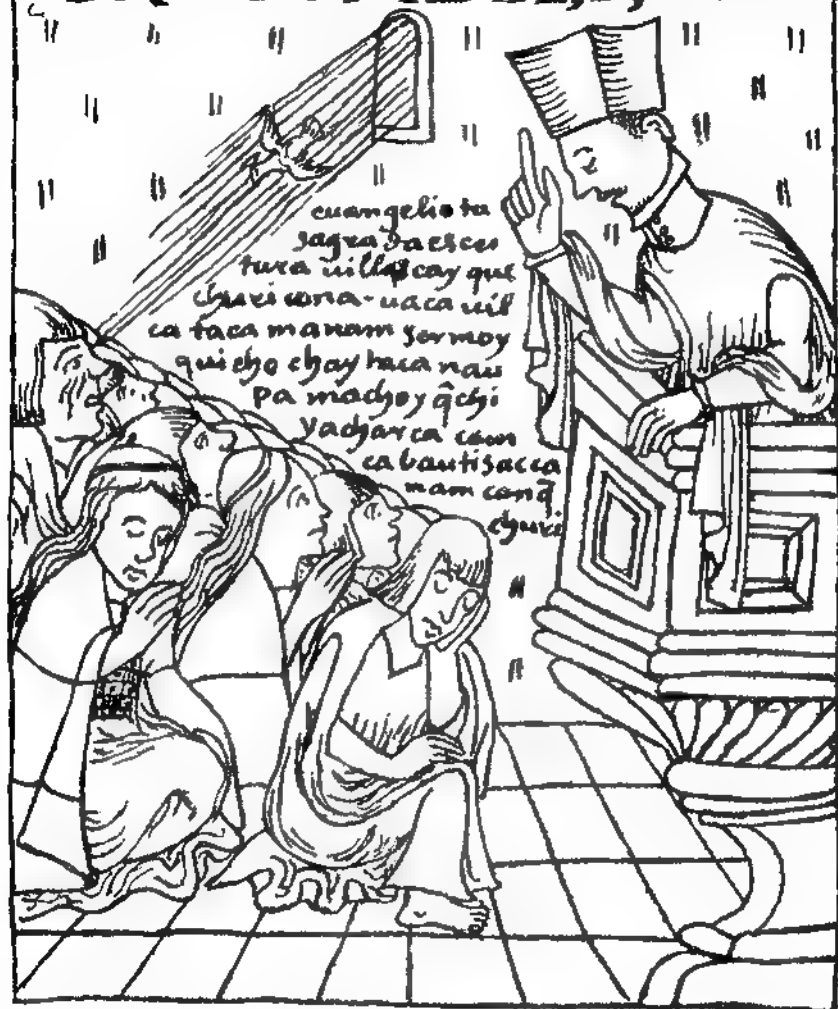 euangeliota
sagradaescri
tura uillascayque
churicona-uacauil
cataca manam sermoy
quicho chaytaca nau
pa machoy q̃chi
yacharca cam
cabautisacca
mam canq̃
churi